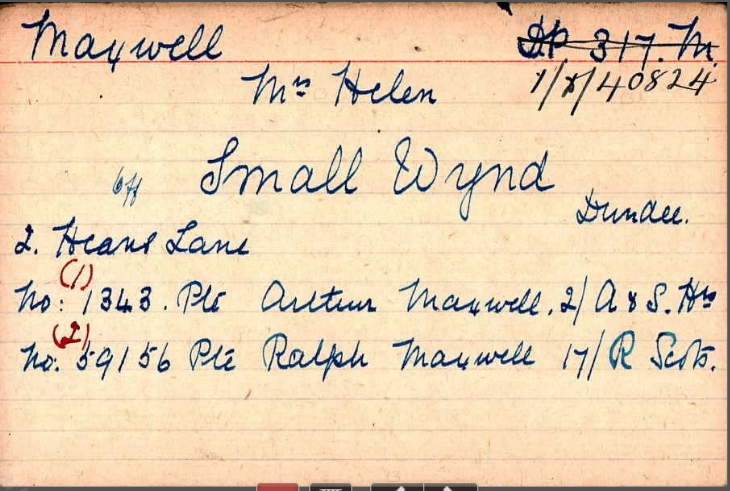 Maxwell DP 317. M.
Mrs Helen 1/8/40824
off Small Wynd
Dundee.
2. Heans Lane
(1)
No: 1343. Pte Arthur Maxwell. 2/ A & S. Hrs
(2)
No: 59156 Pte Ralph Maxwell 17/ R Scots.